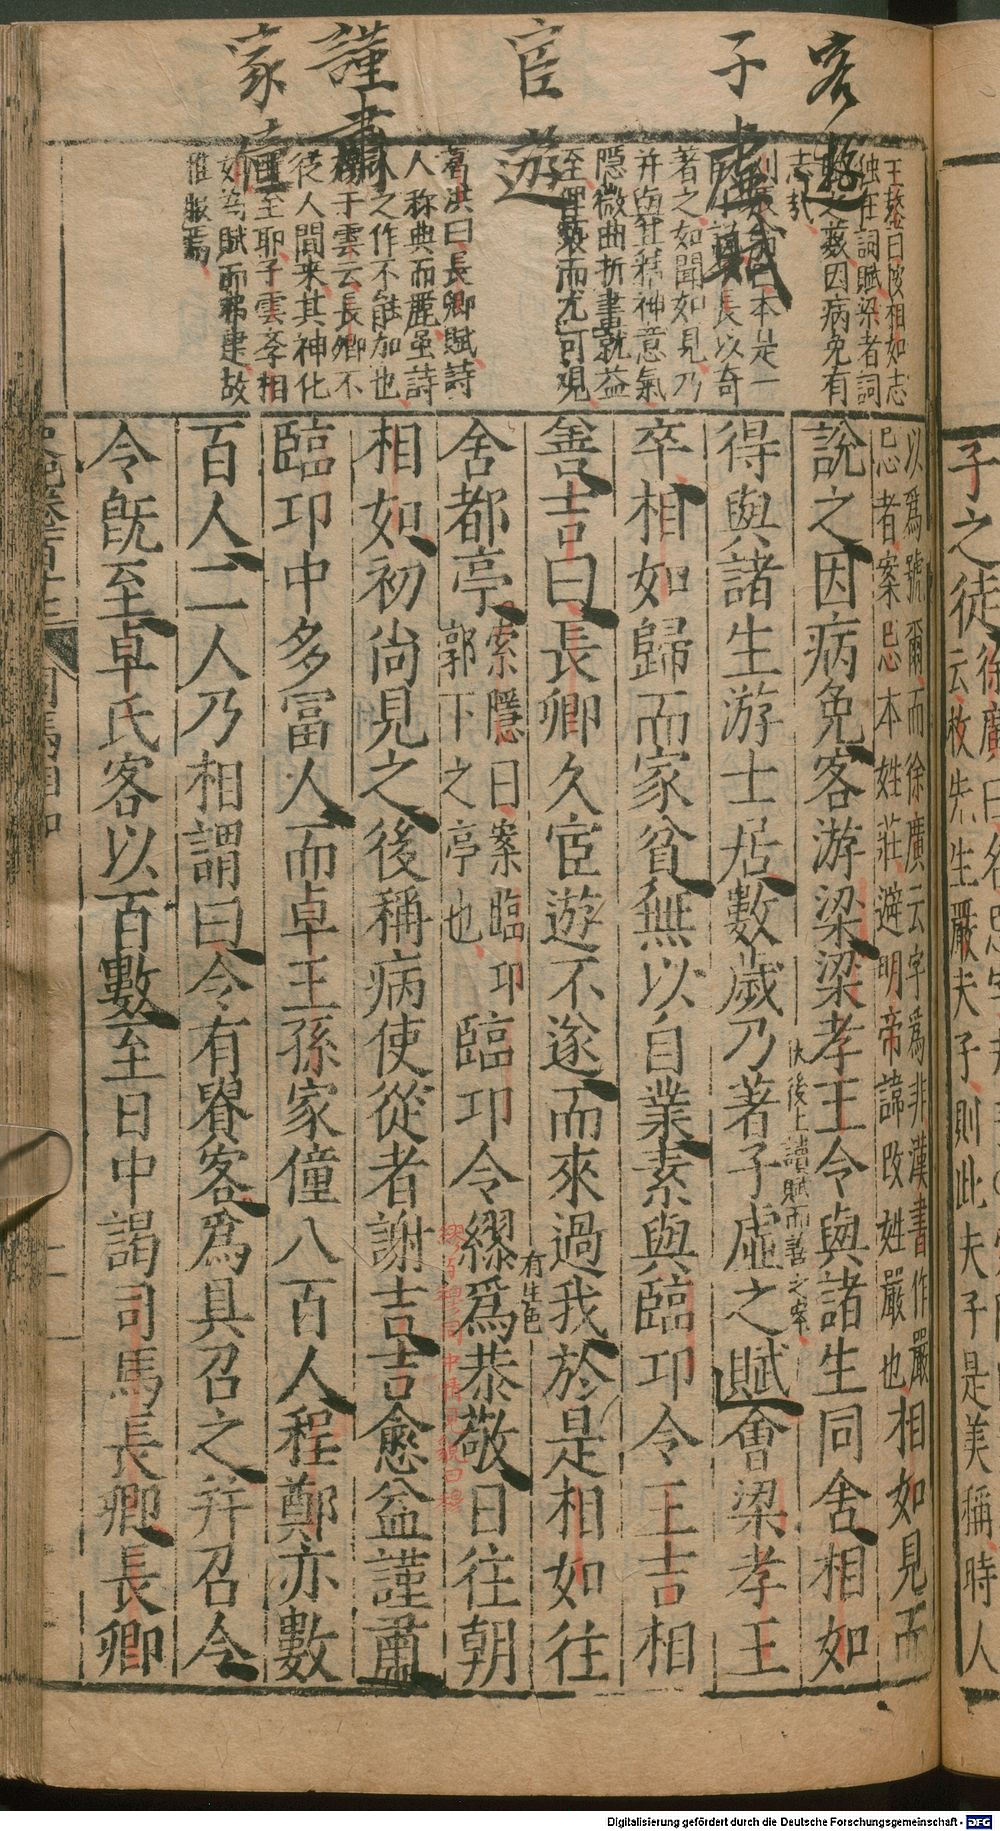 客游
子虛賦
宦遊
謹肅
家僮
以爲號爾而徐廣云字爲非漢書作嚴
忌者案忌本姓莊避明帝諱改姓嚴也
相如見而
說之因病免客游梁梁孝王令與諸生同舍相如
得與諸生游士居數歲乃著子虛之賦會梁孝王
伏後上讀賦而善之案
卒相如歸而家貧無以自業素與臨邛令王吉相
善吉曰長卿久宦遊不遂而來過我於是相如往
有生色
舍都亭
索隱曰案臨邛
郭下之亭也
臨邛令繆爲恭敬日往朝
相如初尙見之後稱病使從者謝吉吉愈益謹肅
臨邛中多富人而卓王孫家僮八百人程鄭亦數
百人二人乃相謂曰令有貴客爲具召之幷召令
令旣至卓氏客以百數至日中謁司馬長卿長卿
葛洪曰長卿賦詩
人称典而麗虽詩
人之作不能加也
楊子雲云長卿不
從人間来其神化
所至耶子雲孝相
如為賦而弗逮故
惟服焉
著之如聞如見乃
并與其精神意氣
隱微曲折書就益
至俚褻而尤可观
子之徒
云枚先生嚴夫子則此夫子是美稱時人
Digitalisierung gefördert durch die Deutsche Forschungsgemeinschaft - DFG